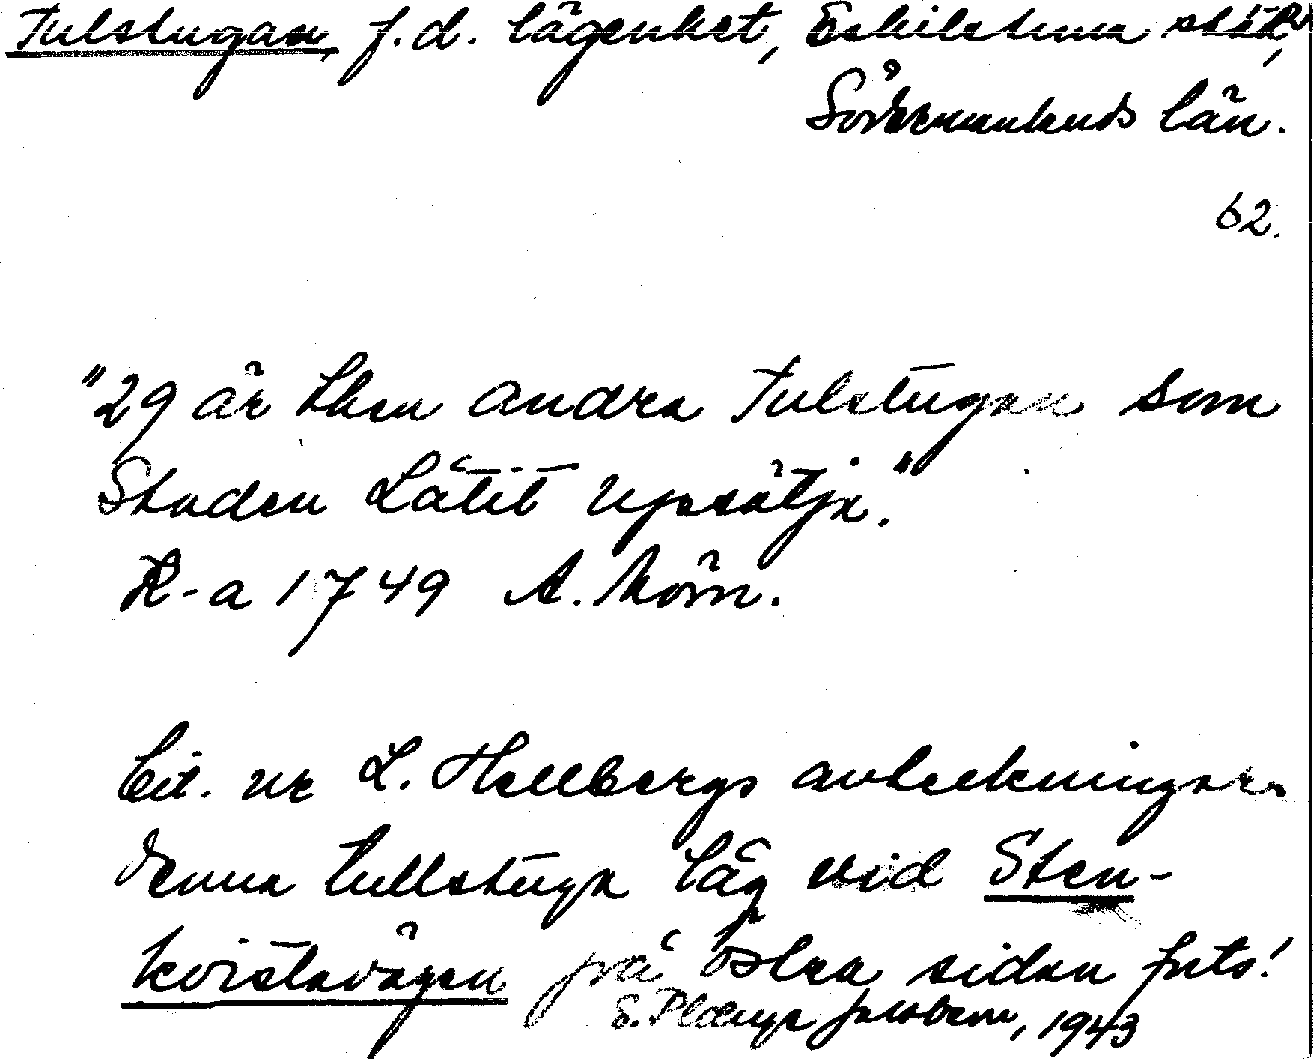 Tulstugan, f.d. lägenhet, Eskilstuna stad,
Södermanlands län.
62.
"29 är then andra Tulstugan som
Staden Låtit Upsätja."
R-a 1749 A. Mörn.
Cit. ur L. Hellbergs anteckningar.
Denna tullstuga låg vid Sten-
kvistavägen på östra sidan
S. 1943